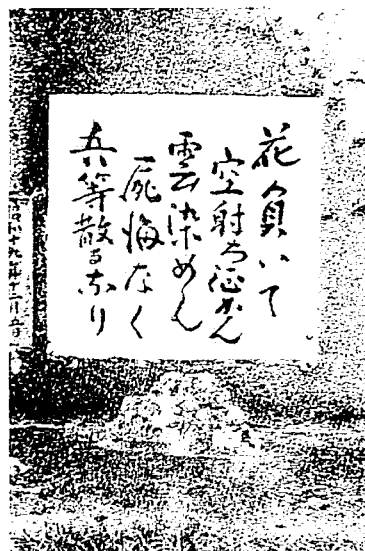 花負いて
空射ち征かん
雲染めん
屍悔なく
吾等散るなり
昭和十九年十二月五日